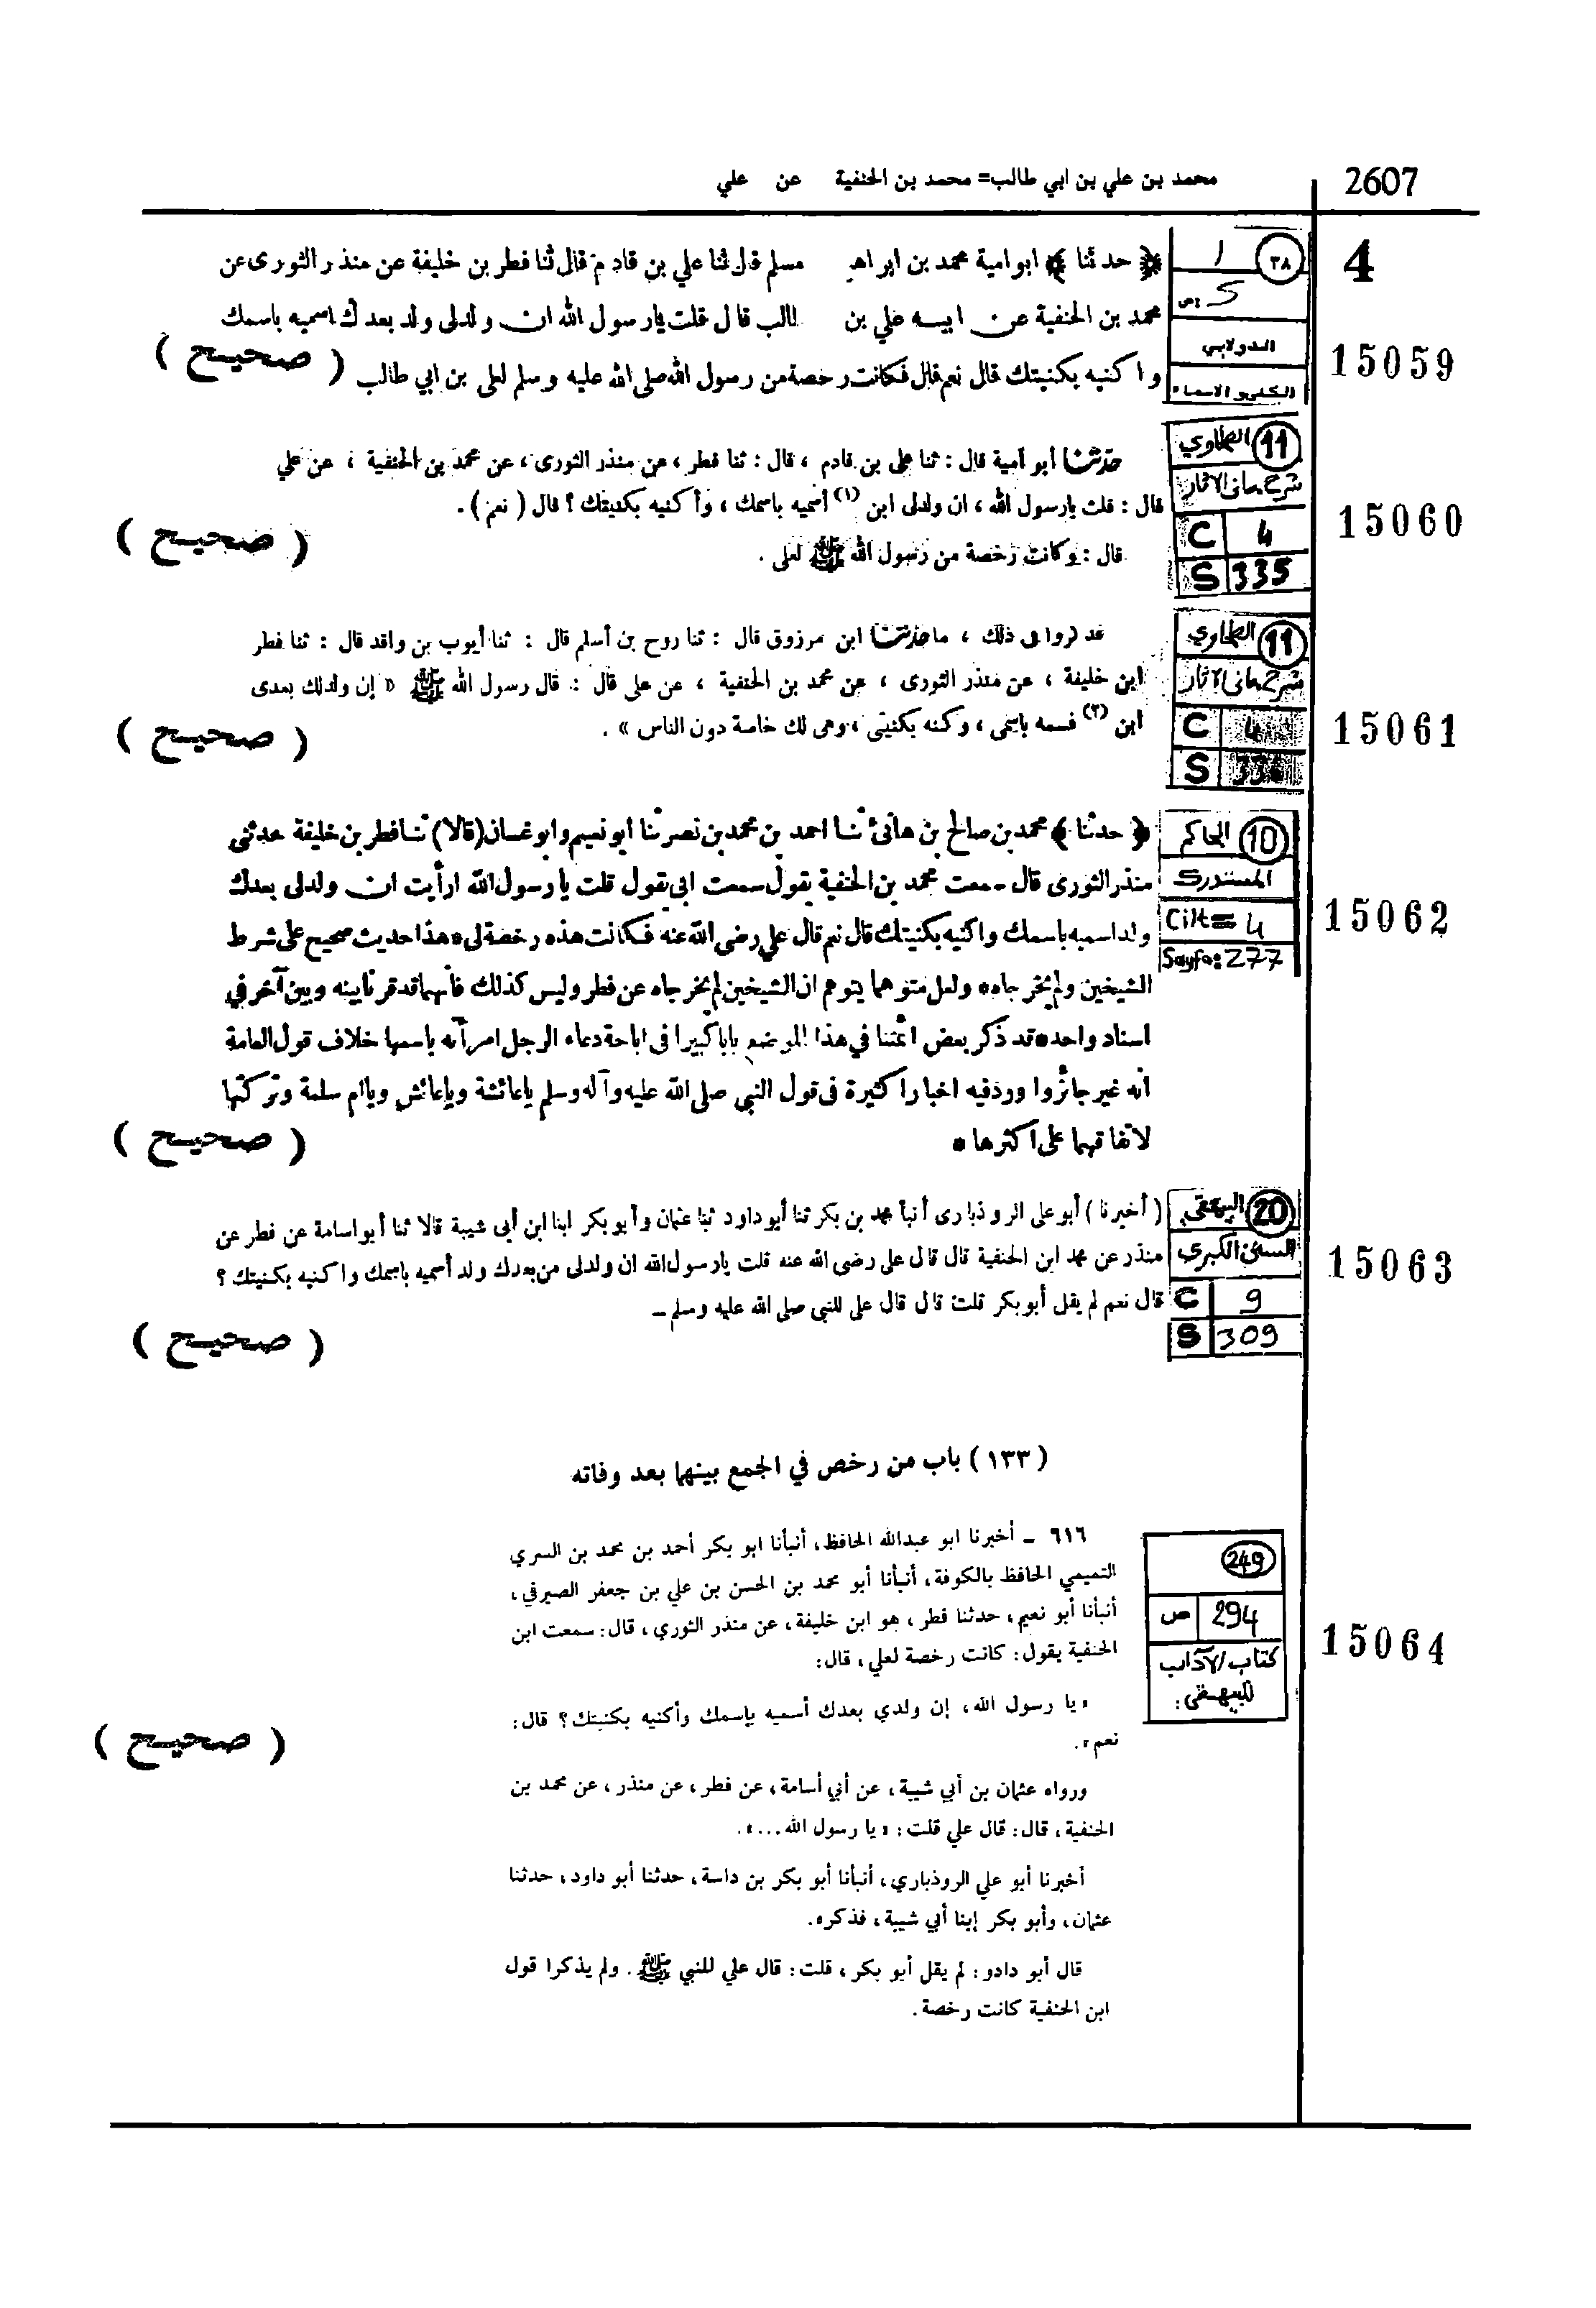 2607
محمد بن علي بن ابي طالب= محمد بن الحنفية عن علي
4
٣٨
١
ص: 5
الدولابي
الكنى والاسماء
15059
﴿ حدثنا ﴾ ابو امية محمد بن ابراهيـ مسلم قال ثنا علي بن قادم قال ثنا فطر بن خليفة عن منذر الثورى عن
محمد بن الحنفية عن ابيه علي بن طالب قال قلت يا رسول الله ان ولدلى ولد بعدك اسميه باسمك
و اكنيه بكنيتك قال نعم قال فكانت رخصة من رسول الله صلى الله عليه وسلم لعلى بن ابي طالب
( صحيح )
11 الطحاوي
شرح معانى الاثار
C 4
S 335
15060
حدثنا أبو أمية قال : ثنا على بن قادم ، قال : ثنا فطر ، عن منذر الثورى ، عن محمد بن الحنفية ، عن علي
قال : قلت يا رسول الله ، ان ولدلى ابن (١) أسميه باسمك ، وأكنيه بكنيتك ؟ قال ( نعم ) .
قال : وكانت رخصة من رسول الله ﷺ لعلى .
( صحيح )
11 الطحاوي
شرح معانى الاثار
C 4
S 336
15061
قد رووا فى ذلك ، ما حدثنا ابن مرزوق قال : ثنا روح بن أسلم قال : ثنا أيوب بن واقد قال : ثنا فطر
ابن خليفة ، عن منذر الثورى ، عن محمد بن الحنفية ، عن على قال : قال رسول الله ﷺ « إن ولدلك بعدى
ابن (٢) فسمه باسمى ، وكنه بكنيتى ، وهى لك خاصة دون الناس » .
( صحيح )
10 الحاكم
المستدرك
Cilt= 4
Sayfa: 277
15062
﴿ حدثنا ﴾ محمد بن صالح بن هانئ ثنا احمد بن محمد بن نصر ثنا ابو نعيم وابو غسان (قالا) ثنا فطر بن خليفة حدثنى
منذر الثورى قال سمعت محمد بن الحنفية يقول سمعت ابى يقول قلت يا رسول الله ارأيت ان ولدلى بعدك
ولد اسميه باسمك واكنيه بكنيتك قال نعم قال علي رضى الله عنه فكانت هذه رخصة لى * هذا حديث صحيح على شرط
الشيخين ولم يخرجاه * ولعل متوهما يتوهم ان الشيخين لم يخرجاه عن فطر وليس كذلك فأنهما قد قرنا بينه وبين آخر في
اسناد واحد * قد ذكر بعض ائمتنا في هذا الموضع بابا كبيرا فى اباحة دعاء الرجل امرأته باسمها خلاف قول العامة
انه غير جائز واورد فيه اخبارا كثيرة فى قول النبى صلى الله عليه وآله وسلم يا عائشة ويا عائش ويا ام سلمة وتركتها
لاتفاقهما على اكثرها *
( صحيح )
20 البيهقي
السنن الكبرى
C 9
S 309
15063
( أخبرنا ) أبو على الروذبارى أنبأ محمد بن بكر ثنا أبو داود ثنا عثمان وأبو بكر ابنا ابن أبى شيبة قالا ثنا أبو اسامة عن فطر عن
منذر عن محمد ابن الحنفية قال قال على رضى الله عنه قلت يا رسول الله ان ولدلى من بعدك ولد أسميه باسمك واكنيه بكنيتك ؟
قال نعم لم يقل أبو بكر قلت قال قال على للنبى صلى الله عليه وسلم ـ
( صحيح )
( ١٣٣ ) باب من رخص في الجمع بينهما بعد وفاته
249
ص 294
كتاب الآداب
للبيهقى:
15064
٦١٦ ـ أخبرنا ابو عبدالله الحافظ، أنبأنا ابو بكر أحمد بن محمد بن السري
التميمي الحافظ بالكوفة، أنبأنا أبو محمد بن الحسن بن علي بن جعفر الصيرفي،
أنبأنا أبو نعيم، حدثنا فطر، هو ابن خليفة، عن منذر الثوري، قال: سمعت ابن
الحنفية يقول: كانت رخصة لعلي، قال:
« يا رسول الله، إن ولدي بعدك أسميه بإسمك وأكنيه بكنيتك؟ قال:
نعم ».
ورواه عثمان بن أبي شيبة، عن أبي أسامة، عن فطر، عن منذر، عن محمد بن
الحنفية، قال: قال علي قلت: « يا رسول الله... ».
أخبرنا أبو علي الروذباري، أنبأنا أبو بكر بن داسة، حدثنا أبو داود، حدثنا
عثمان، وأبو بكر إبنا أبي شيبة، فذكره.
قال أبو دادو: لم يقل أبو بكر، قلت: قال علي للنبي ﷺ. ولم يذكرا قول
ابن الحنفية كانت رخصة.
( صحيح )